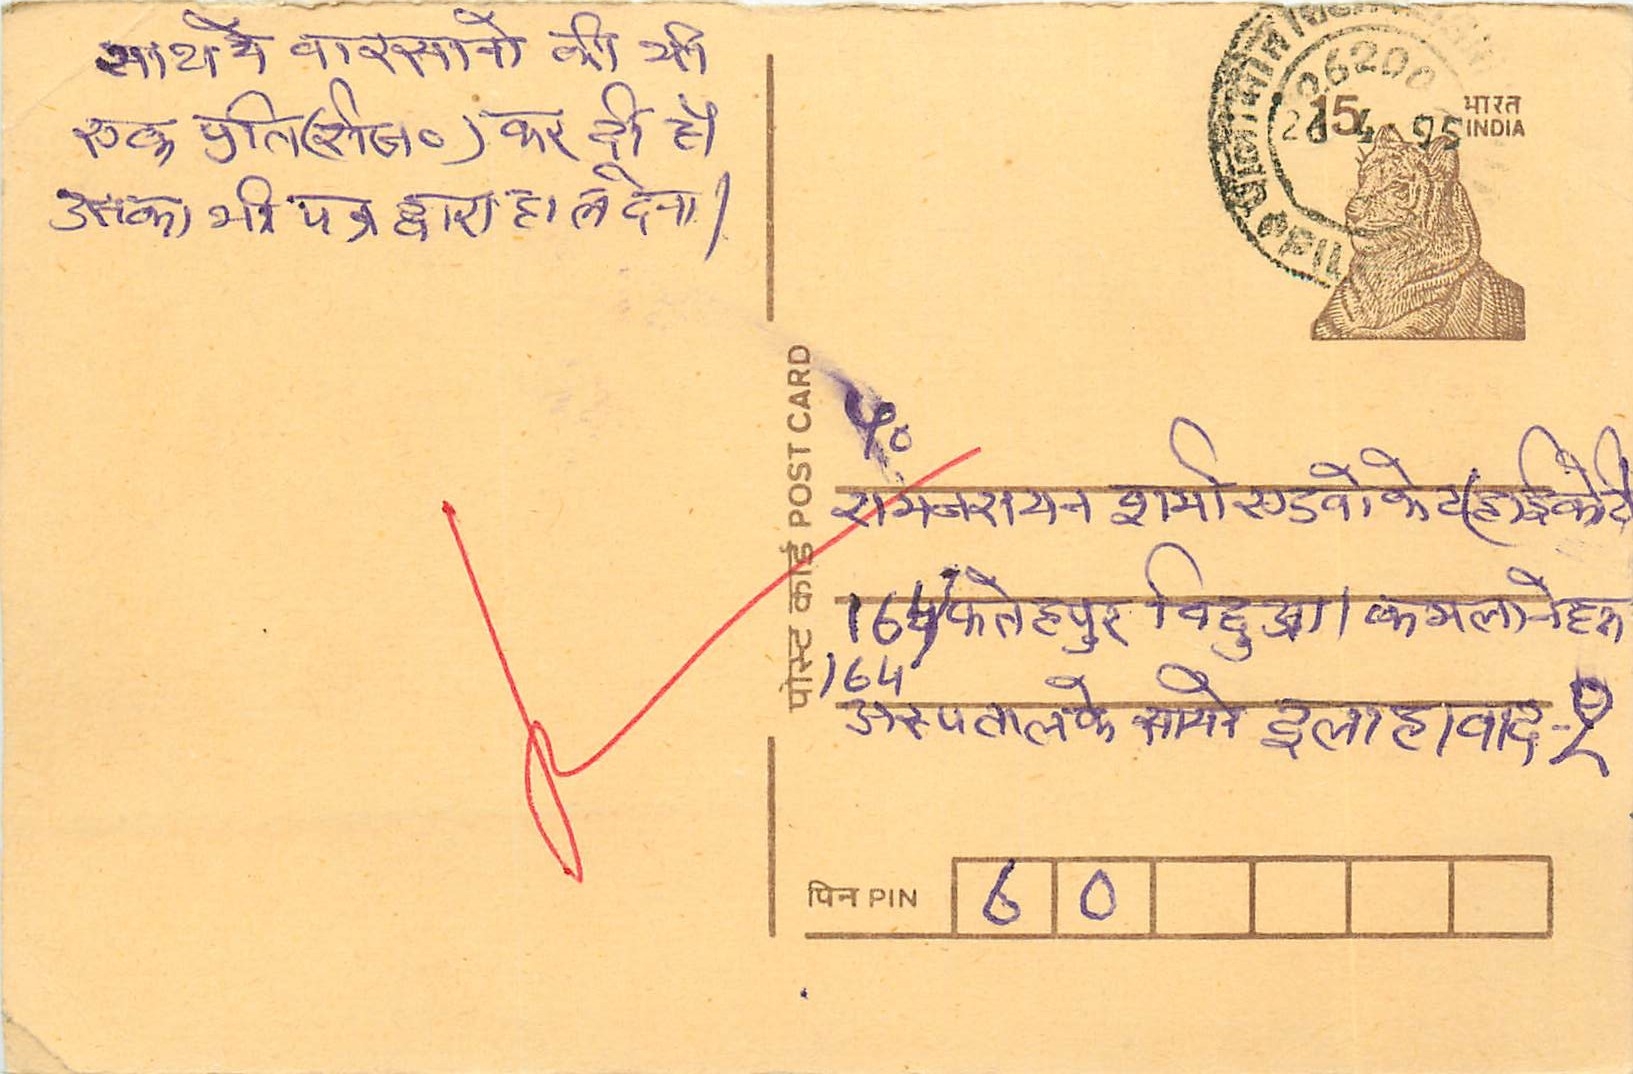 साथ मे वारसानो की भी
एक प्रति(रजि०) कर दी है
उसका भी पत्र द्वारा हाल देना।
26200
15
भारत
INDIA
26 4 95
पोस्ट कार्ड POST CARD
पं०
रामनरायन शर्मा एडवोकेट(हाईकोर्ट
164 फतेहपुर विछुआ। कमला नेहरू
164
अस्पताल के सामने इलाहावाद-2
पिन PIN 6 0